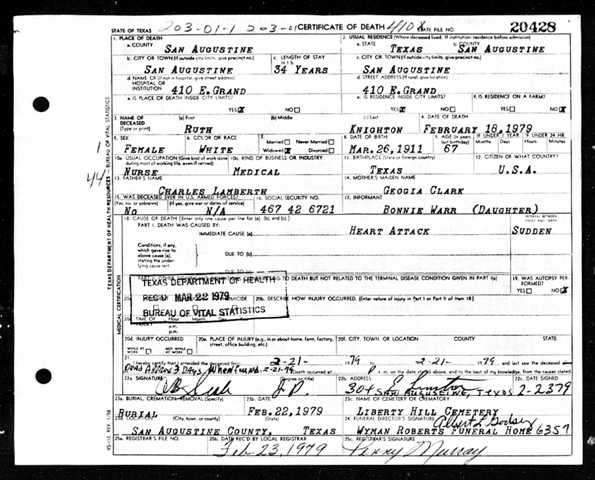 STATE OF TEXAS 203-01-1 203-01 CERTIFICATE OF DEATH 410X STATE FILE NO. 20428
1. PLACE OF DEATH 2. USUAL RESIDENCE (Where deceased lived. If institution: residence before admission)
a. COUNTY SAN AUGUSTINE a. STATE TEXAS b. COUNTY SAN AUGUSTINE
b. CITY OR TOWN (If outside city limits, give precinct no.) c. LENGTH OF STAY c. CITY OR TOWN (If outside city limits, give precinct no.)
SAN AUGUSTINE 34 YEARS SAN AUGUSTINE
d. NAME OF (If not in hospital, give street address) HOSPITAL OR INSTITUTION 410 E. GRAND d. STREET ADDRESS 410 E. GRAND
e. IS PLACE OF DEATH INSIDE CITY LIMITS? YES NO e. IS RESIDENCE INSIDE CITY LIMITS? YES NO f. IS RESIDENCE ON A FARM? YES NO
3. NAME OF DECEASED (Type or print) (a) First (b) Middle (c) Last 4. DATE OF DEATH
RUTH KNIGHTON FEBRUARY 18, 1979
5. SEX 6. COLOR OR RACE 7. Married Never Married Widowed Divorced 8. DATE OF BIRTH 9. AGE
FEMALE WHITE MAR. 26, 1911 67
10a. USUAL OCCUPATION (Give kind of work done during most of working life, even if retired) 10b. KIND OF BUSINESS OR INDUSTRY 11. BIRTHPLACE (State or foreign country) 12. CITIZEN OF WHAT COUNTRY?
NURSE MEDICAL TEXAS U.S.A.
13. FATHER'S NAME 14. MOTHER'S MAIDEN NAME
CHARLES LAMBERTH GEOGIA CLARK
15. WAS DECEASED EVER IN U.S. ARMED FORCES? 16. SOCIAL SECURITY NO. 17. INFORMANT
NO N/A 467 42 6721 BONNIE WARR (DAUGHTER)
18. CAUSE OF DEATH (Enter only one cause per line for (a), (b), and (c).)
PART I. DEATH WAS CAUSED BY:
IMMEDIATE CAUSE (a) HEART ATTACK SUDDEN
Conditions, if any, which gave rise to above cause (a), stating the underlying cause last.
DUE TO (b)
DUE TO (c)
TO DEATH BUT NOT RELATED TO THE TERMINAL DISEASE CONDITION GIVEN IN PART I(a) 19. WAS AUTOPSY PERFORMED? YES NO
TEXAS DEPARTMENT OF HEALTH
REC'D MAR 22 1979
BUREAU OF VITAL STATISTICS
20b. DESCRIBE HOW INJURY OCCURRED. (Enter nature of injury in Part I or Part II of item 18)
a.m.
p.m.
20d. INJURY OCCURRED 20e. PLACE OF INJURY (e.g., in or about home, farm, factory, street, office building, etc.) 20f. CITY, TOWN, OR LOCATION COUNTY STATE
21. I hereby certify that I attended the deceased from 2-21- 1979 to 2-21- 1979
Dead Approx 3 Days, When Found 2-21-79
22a. SIGNATURE J.P. 22b. ADDRESS SAN AUGUSTINE, TEXAS 22c. DATE SIGNED 2-23-79
23a. BURIAL, CREMATION, REMOVAL (Specify) 23b. DATE 23c. NAME OF CEMETERY OR CREMATORY
BURIAL FEB. 22, 1979 LIBERTY HILL CEMETERY
23d. LOCATION (City, town, or county) (State) 24. FUNERAL DIRECTOR'S SIGNATURE
SAN AUGUSTINE COUNTY, TEXAS WYMAN ROBERTS FUNERAL HOME 6357
25a. REGISTRAR'S FILE NO. 25b. DATE REC'D BY LOCAL REGISTRAR 25c. REGISTRAR'S SIGNATURE
Feb 23, 1979 Penny Murray
TEXAS DEPARTMENT OF HEALTH RESOURCES - BUREAU OF VITAL STATISTICS
MEDICAL CERTIFICATION